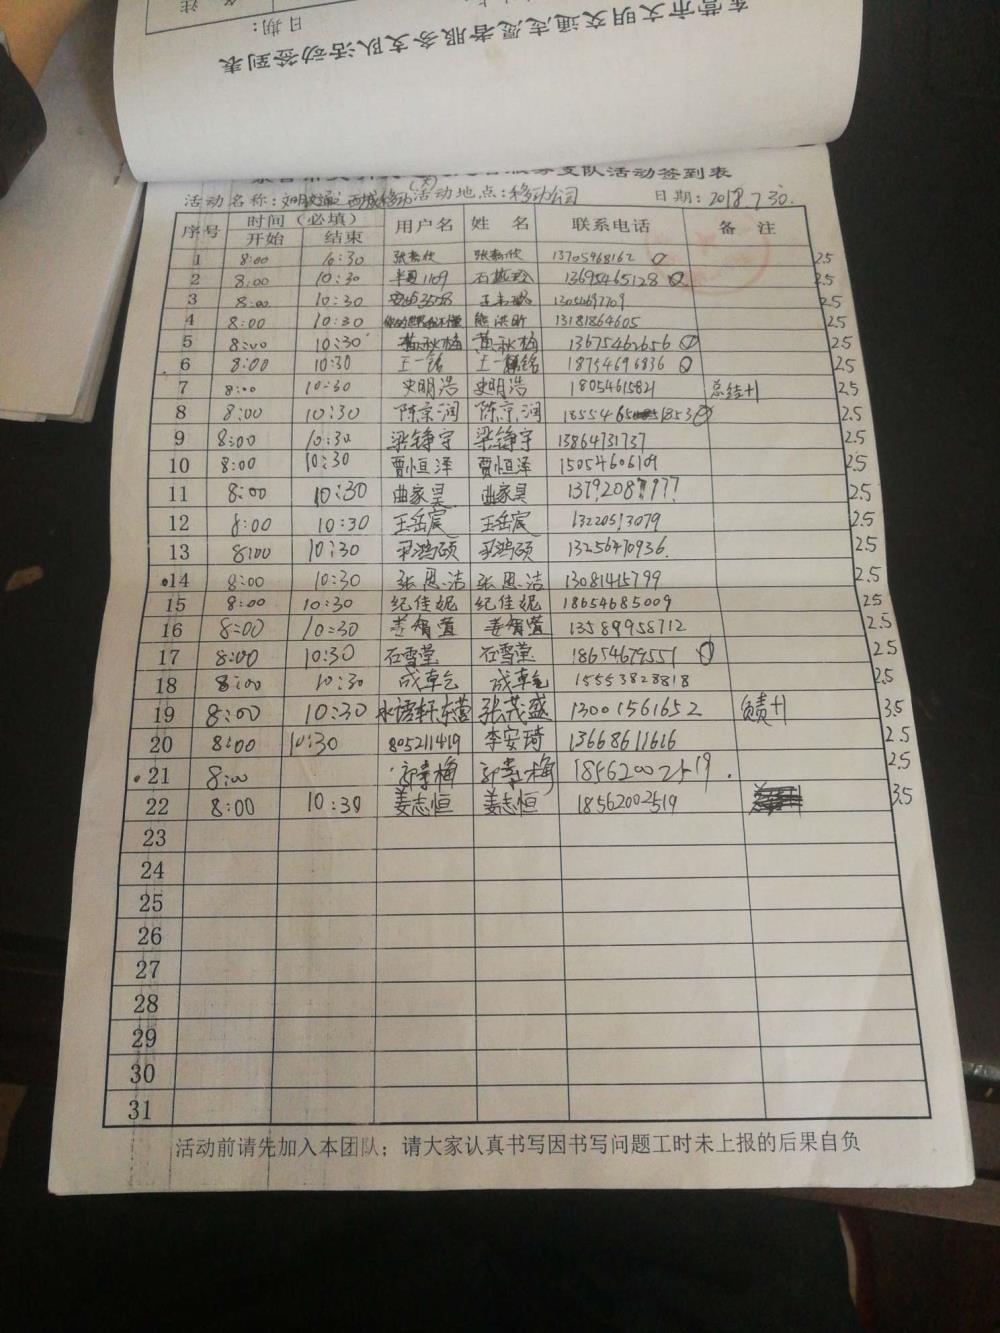 东营市文明交通志愿者服务支队活动签到表
日期：
备 注
服务支队活动签到表
活动名称：文明交通 西城移动 活动地点：移动公司 日期：2018.7.30.
序号 时间（必填） 用户名 姓 名 联系电话 备 注
开始 结束
1 8:00 10:30 13705468162 2.5
2 8:00 10:30 半夏1109 13695465128 2.5
3 8:00 10:30 13054697709 2.5
4 8:00 10:30 熊洪昕 13181864605 2.5
5 8:00 10:30 黄秋梅 黄秋梅 13675462656 2.5
6 8:00 10:30 王一铭 王一铭 18754696836 2.5
7 8:00 10:30 史明浩 史明浩 18054615821 总结+1 2.5
8 8:00 10:30 陈京润 陈京润 2.5
9 8:00 10:30 梁铮宇 梁铮宇 13864731737 2.5
10 8:00 10:30 贾恒泽 贾恒泽 15054606109 2.5
11 8:00 10:30 曲家昊 曲家昊 2.5
12 8:00 10:30 王岳宸 王岳宸 13220513079 2.5
13 8:00 10:30 13256470936. 2.5
14 8:00 10:30 张恩洁 张恩洁 13081415799 2.5
15 8:00 10:30 纪佳妮 纪佳妮 18654685009 2.5
16 8:00 10:30 13589958712 2.5
17 8:00 10:30 石雪莹 石雪莹 18654679551 2.5
18 8:00 10:30 15553828818 2.5
19 8:00 10:30 张茂盛 13001561652 负责+1 3.5
20 8:00 10:30 805211419 李安琦 13668611616 2.5
21 8:00 18562002519. 2.5
22 8:00 10:30 姜志恒 姜志恒 18562002519 3.5
23
24
25
26
27
28
29
30
31
活动前请先加入本团队；请大家认真书写因书写问题工时未上报的后果自负